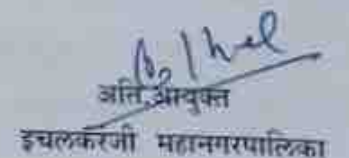 अति. आयुक्त
इचलकरंजी महानगरपालिका